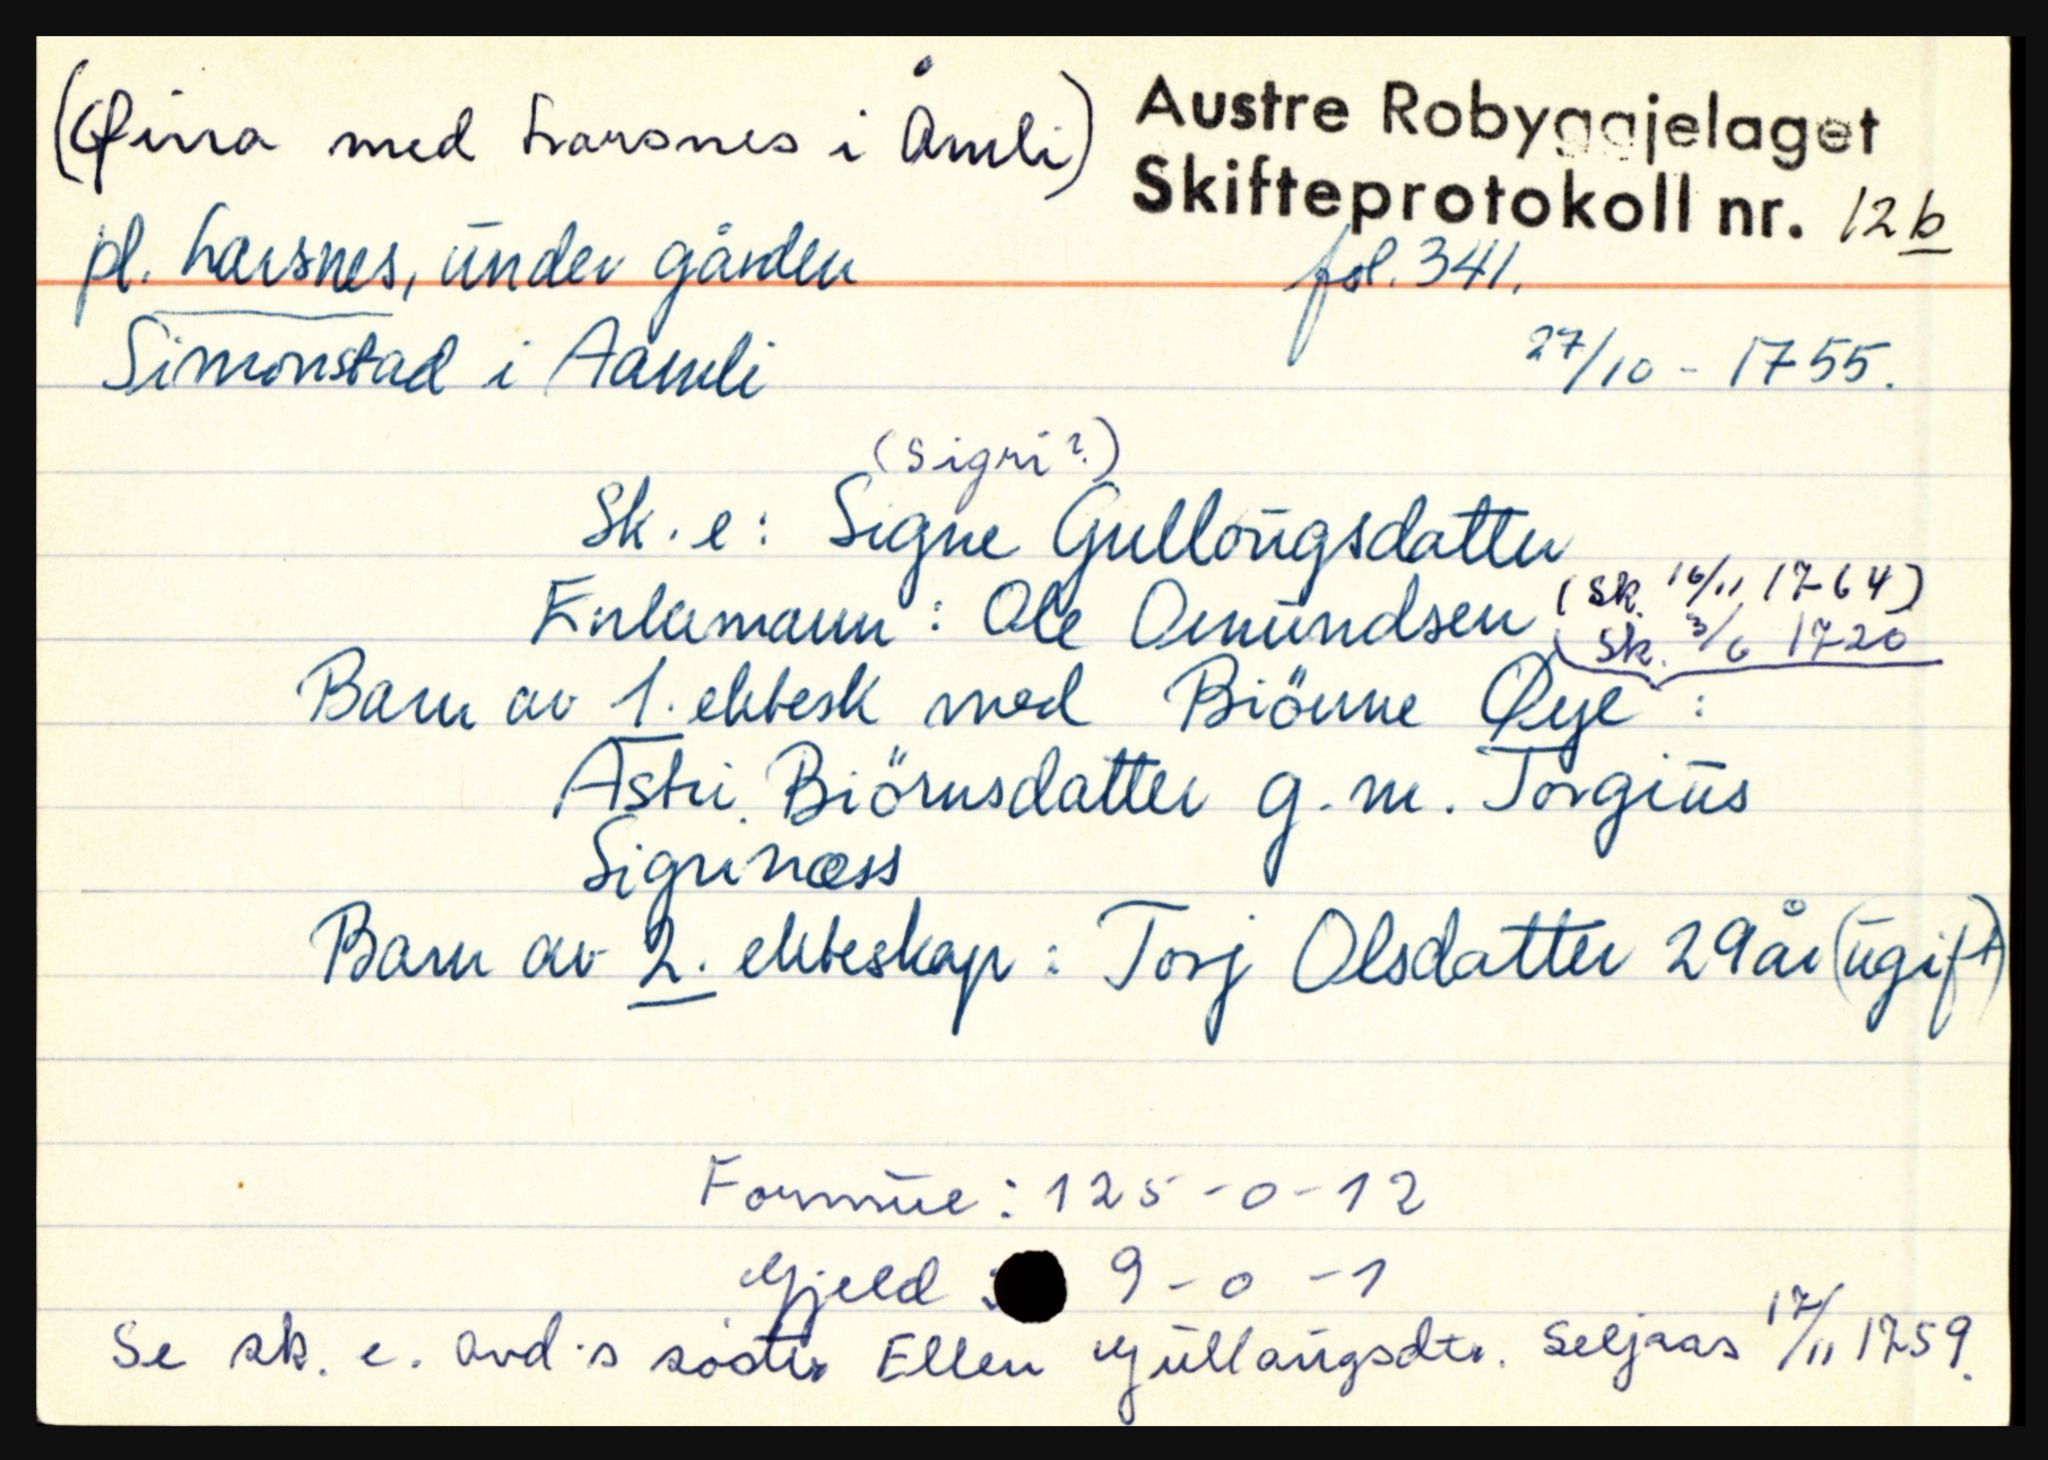 (Øina med Larsnes i Åmli)
Austre Robyggjelaget
Skifteprotokoll nr. 12b
pl. Larsnes, under gården
fol. 341.
Simonstad i Aamli
27/10 - 1755.
(Sigri?)
Sk. e: Signe Gullougsdatter
Enkemann: Ole Omundsen (sk. 16/11 1764)
Sk. 3/6 1720
Barn av 1. ektesk med Biörne Øye:
Astri Biörnsdatter g. m. Torgius
Sigrinæss
Barn av 2. ekteskap: Torj Olsdatter 29 år (ugift)
Formue: 125-0-12
Gjeld: 9-0-1
Se sk. e. avd.s söster Ellen Gullaugsdtr. Seljaas 17/11 1759.